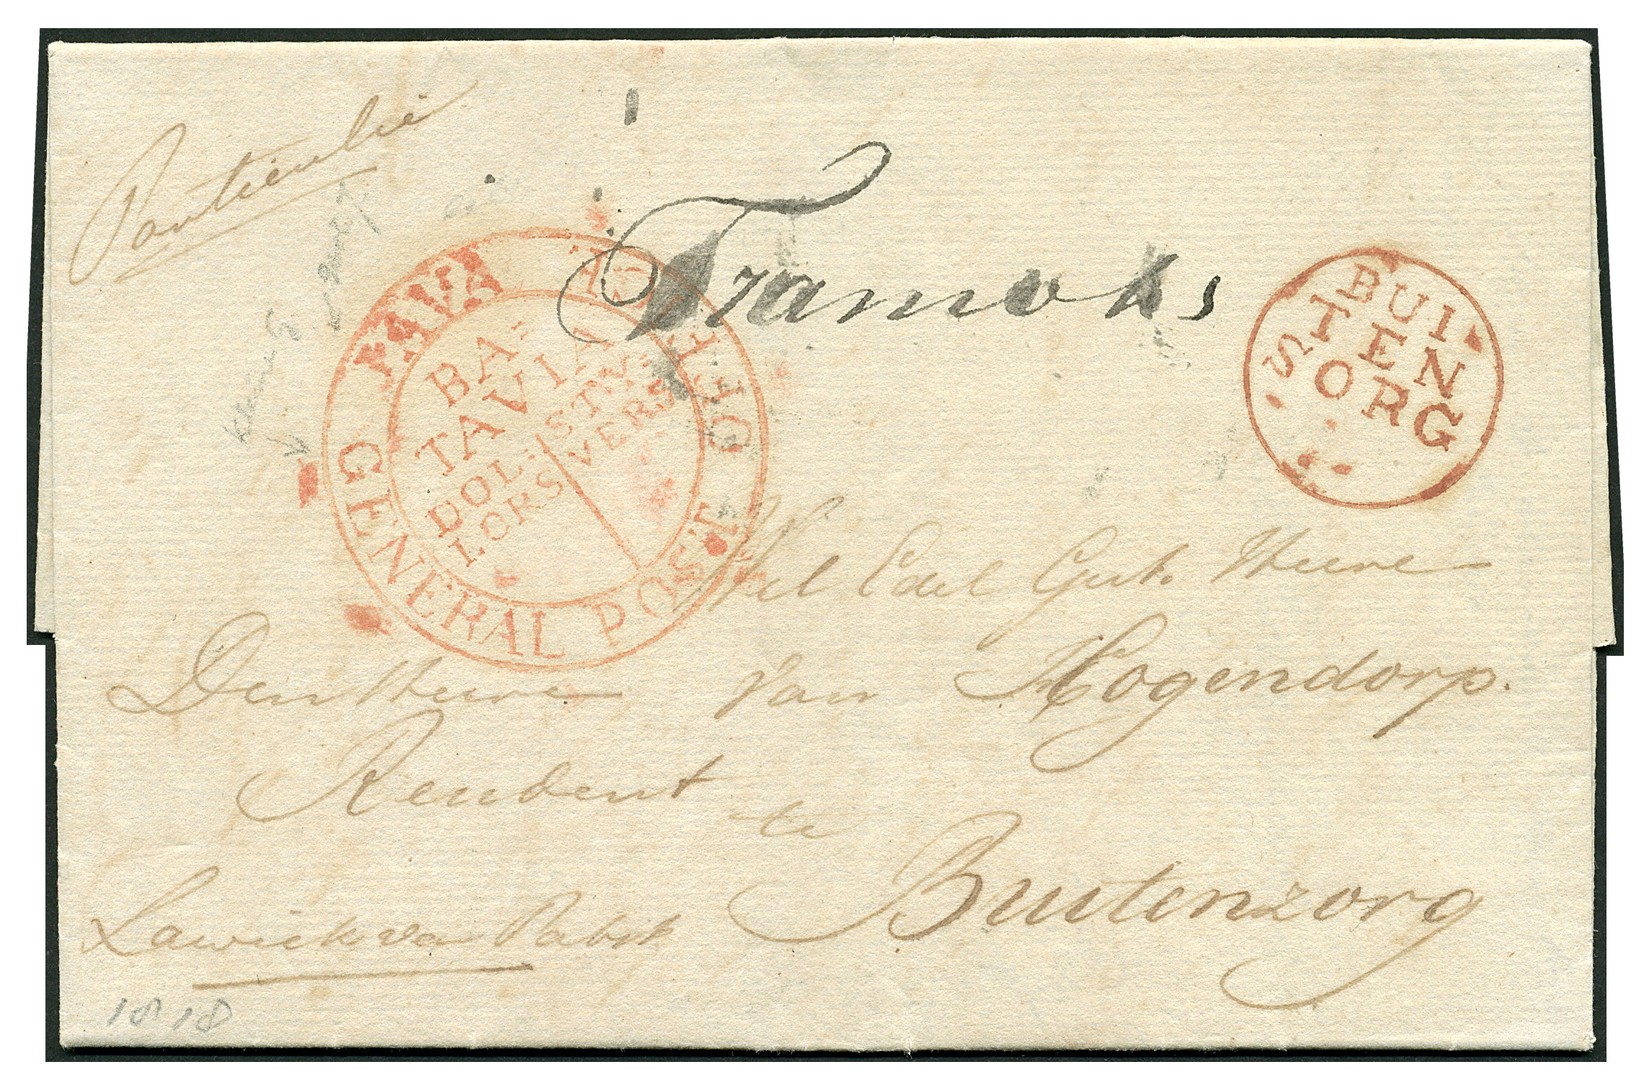 Particulié
Tramoks
JAVA GENERAL POST OFFICE
BA=
TAVIA
DOL:
LORS
STYV:
VERS
BUI
TEN
SORG
Wel Edel Gestr. Heere
Den Heere Van Hogendorp.
Resident
te
Buitenzorg
Lawick van Pabst
1818